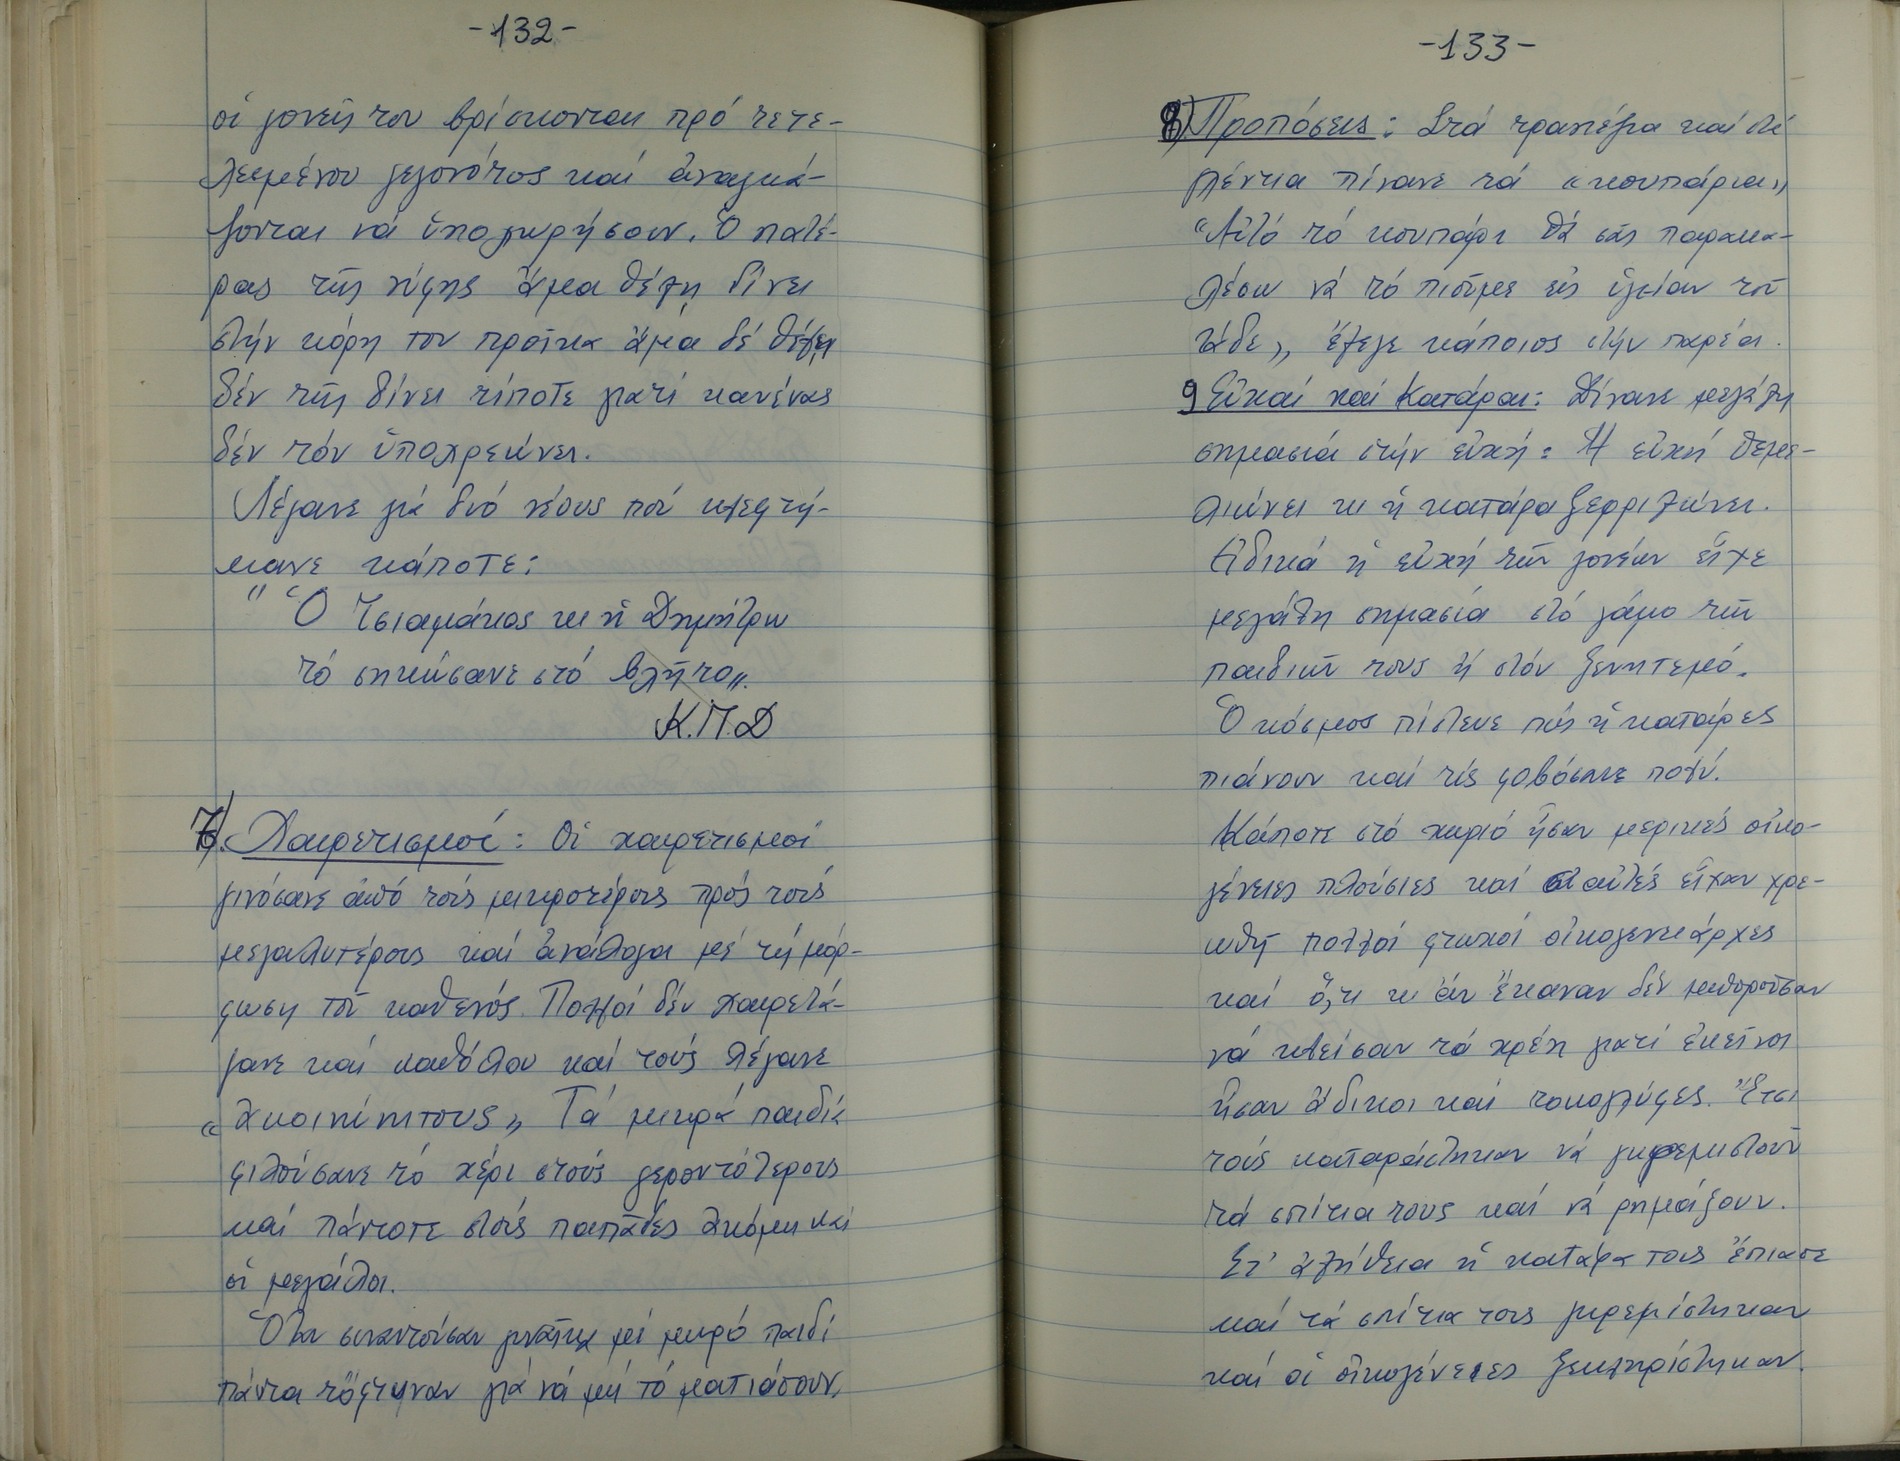 -132-
οἱ γονεῖς του βρίσκονται πρό τετε-
λεσμένου γεγονότος καί ἀναγκά-
ζονται νά ὑποχωρήσουν. Ὁ πατέ-
ρας τῆς νύφης ἅμα θέλη δίνει
στήν κόρη του προῖκα ἅμα δέ θέλει
δέν τῆς δίνει τίποτε γιατί κανένας
δέν τόν ὑποχρεώνει.
Λέγανε γιά δυό νέους πού κλεφτή-
κανε κάποτε:
"Ὁ Τσιαμάκος κι ἡ Δημήτρω
τό σηκώσανε στό βλῆτο„.
Κ.Π.Δ
7) Χαιρετισμοί: Οἱ χαιρετισμοί
γινόσανε ἀπό τούς μικροτέρους πρός τούς
μεγαλυτέρους καί ἀνάλογα μέ τή μόρ-
φωση τοῦ καθενός. Πολλοί δέν χαιρετά-
γανε καί καθόλου καί τούς λέγανε
«ἀκοινώνητους„ Τά μικρά παιδιά
φιλούσανε τό χέρι στούς γεροντότερους
καί πάντοτε στούς παπᾶδες ἀκόμη καί
οἱ μεγάλοι.
Ὅταν συναντοῦσαν γυναῖκα μέ μικρό παιδί
πάντα τὄφτυναν γιά νά μή τό ματιάσουν,
-133-
8) Προπόσεις: Στά τραπέζια καί στά
γλέντια πίνανε τά «κουπάρια„
"Αὐτό τό κουπάρι θά σᾶς παρακα-
λέσω νά τό πιοῦμε εἰς ὑγείαν τοῦ
τάδε„ ἔλεγε κάποιος στήν παρέα.
9 Εὐχαί καί Κατάραι: Δίνανε μεγάλη
σημασία στήν εὐχή: Ἡ εὐχή θεμε-
λιώνει κι ἡ κατάρα ξερριζώνει.
Εἰδικά ἡ εὐχή τῶν γονέων εἶχε
μεγάλη σημασία στό γάμο τῶν
παιδιῶν τους ἤ στόν ξενητεμό.
Ὁ κόσμος πίστευε πώς ἡ κατάρες
πιάνουν καί τίς φοβόσανε πολύ.
Κάποτε στό χωριό ἦσαν μερικές οἰκο-
γένειες πλούσιες καί σ' αὐτές εἶχαν χρε-
ωθῆ πολλοί φτωχοί οἰκογενειάρχες
καί ὅ,τι κι ἄν ἔκαναν δέν μποροῦσαν
νά κλείσουν τά χρέη γιατί ἐκεῖνοι
ἦσαν ἄδικοι καί τοκογλύφες. Ἔτσι
τούς καταράστηκαν νά γκρεμιστοῦν
τά σπίτια τους καί νά ρημάξουν.
Στ' ἀλήθεια ἡ κατάρα τους ἔπιασε
καί τά σπίτια τους γκρεμίστηκαν
καί οἱ οἰκογένειες ξεκληρίστηκαν.